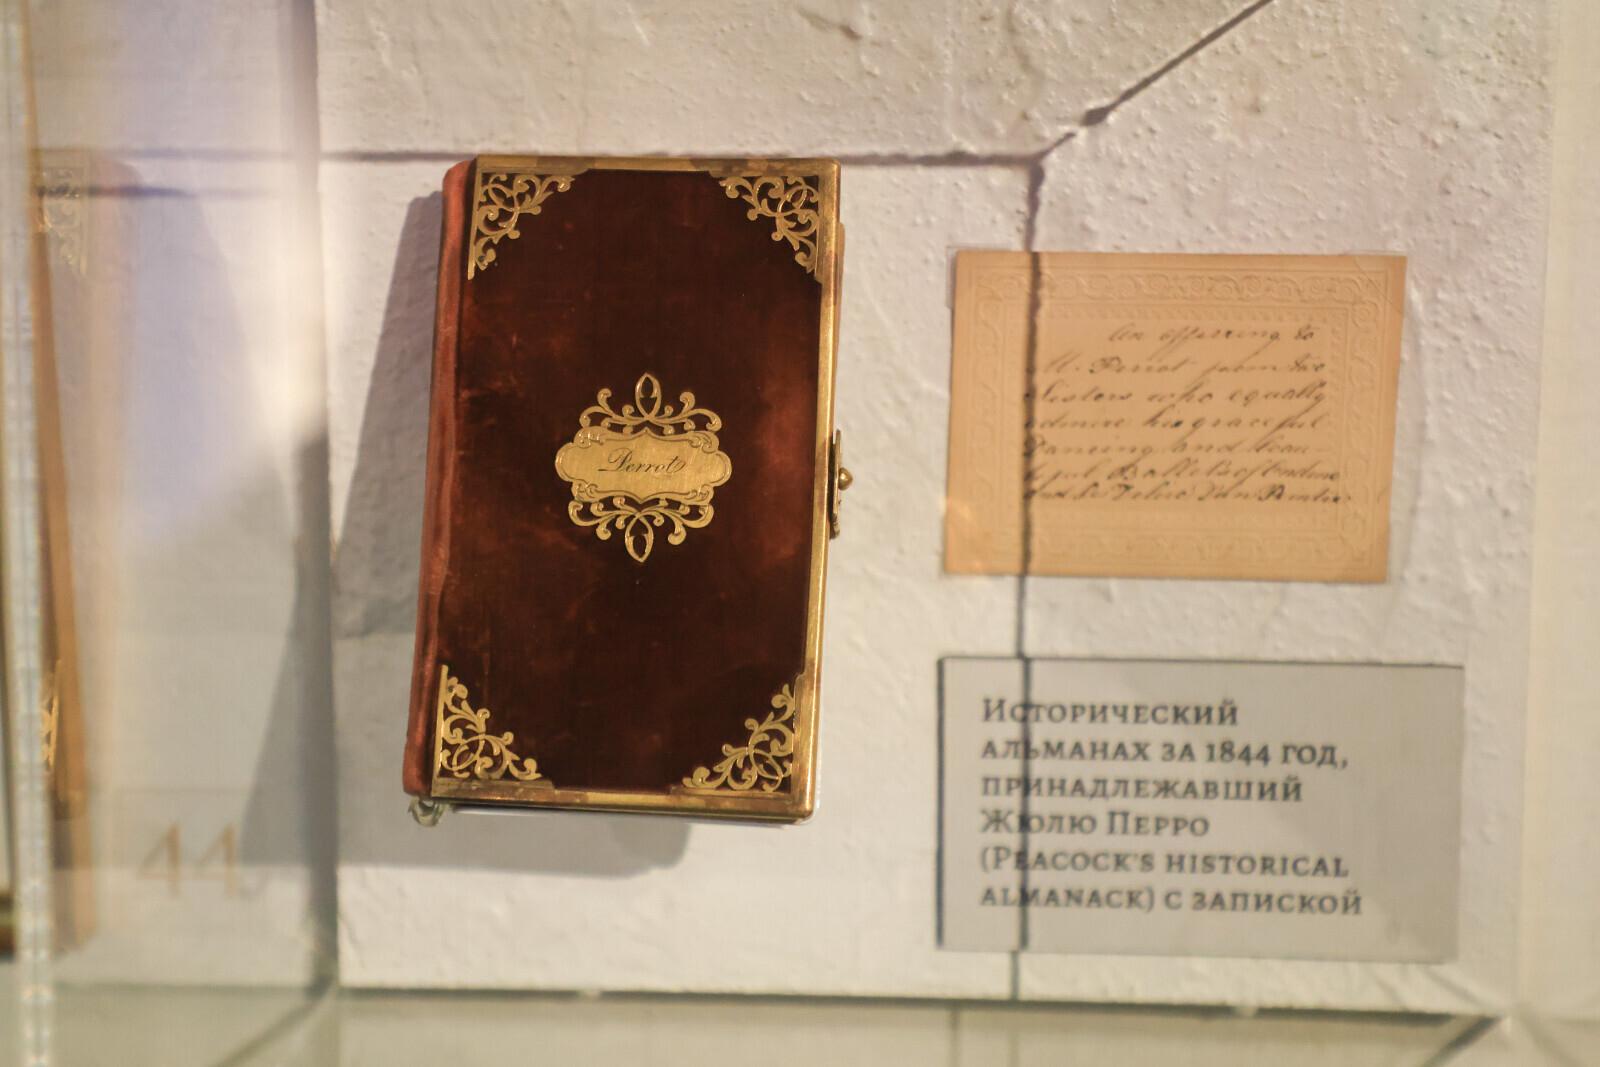 Perrot
An offering to
M. Perrot from the
Sisters who equally
admire his graceful
Dancing and beau-
tiful Ballets of Ondine
and
ИСТОРИЧЕСКИЙ
АЛЬМАНАХ ЗА 1844 ГОД,
ПРИНАДЛЕЖАВШИЙ
ЖЮЛЮ ПЕРРО
(PEACOCK'S HISTORICAL
ALMANACK) С ЗАПИСКОЙ
44